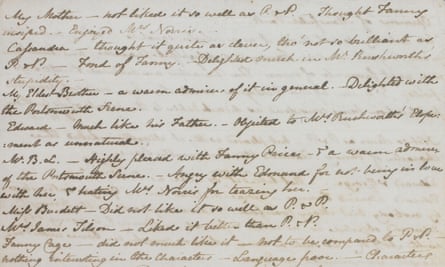 My Mother — not liked it so well as P. & P. — Thought Fanny
insipid. — Enjoyed Mrs. Norris. —
Cassandra — thought it quite as clever, tho' not so brilliant as
P. & P. — Fond of Fanny. — Delighted much in Mr. Rushworth's
stupidity. —
My Eldest Brother — a warm admirer of it in general. — Delighted with
the Portsmouth Scene.
Edward — Much like his Father. — Objected to Mrs. Rushworth's Elope-
ment as unnatural.
Mr. B. L. — Highly pleased with Fanny Price — & a warm admirer
of the Portsmouth Scene. — Angry with Edmund for not being in love
with her, & hating Mrs. Norris for teazing her. —
Miss Burdett — Did not like it so well as P. & P.
Mrs. James Tilson — Liked it better than P. & P.
Fanny Cage — did not much like it — not to be compared to P. & P. —
nothing interesting in the Characters — Language poor. — Characters